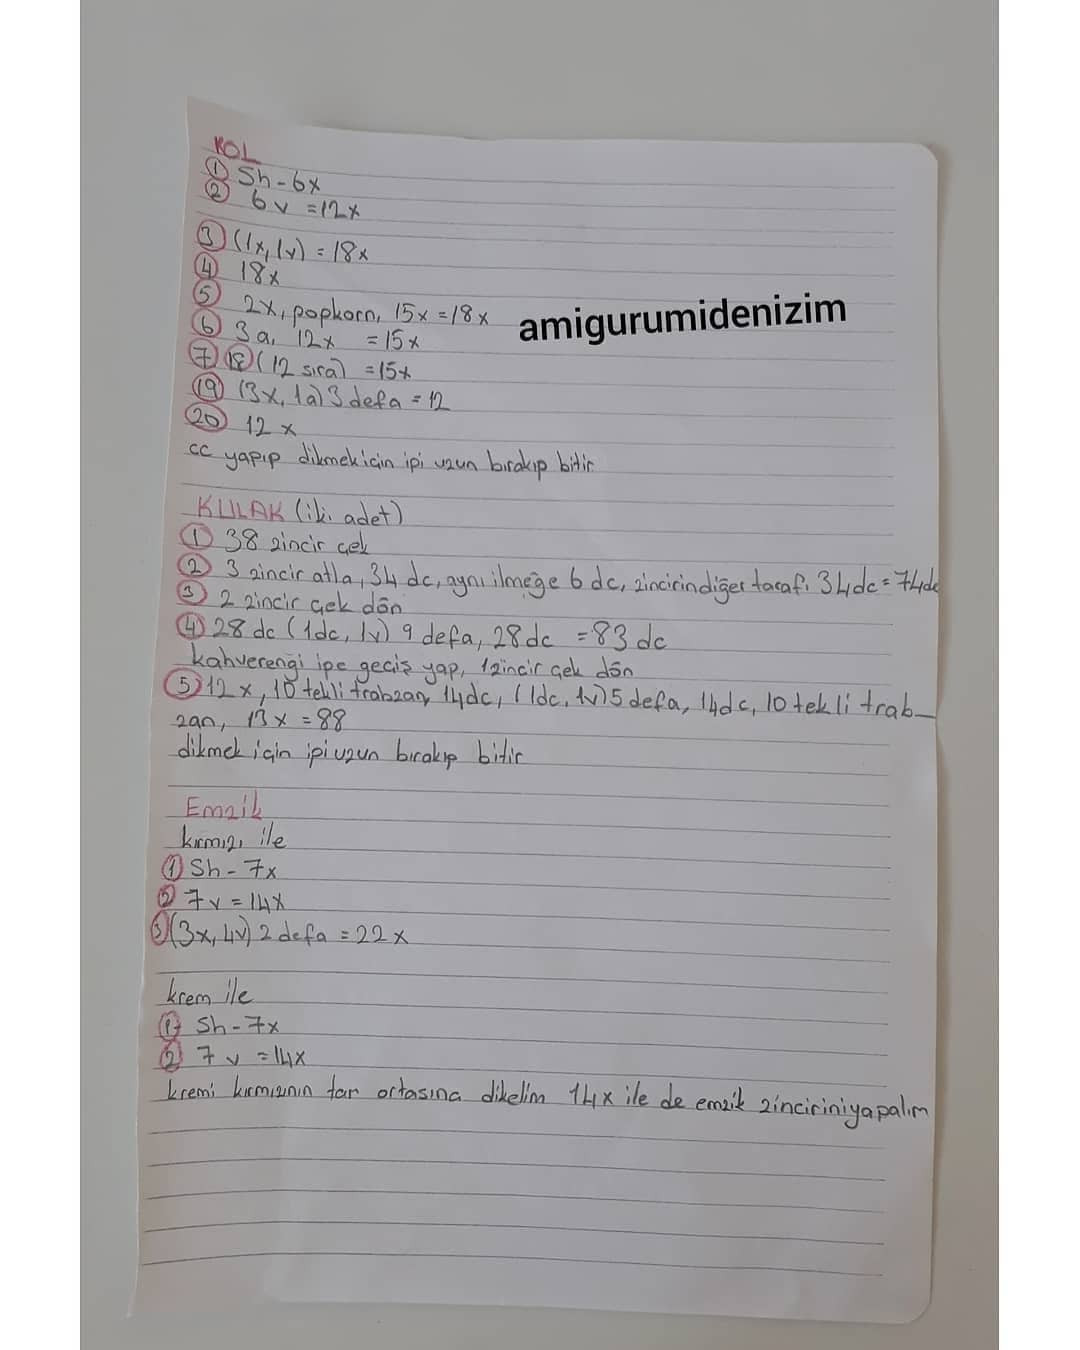 KOL
① Sh-6x
② 6v =12x
③ (1x,1v) = 18x
④ 18x
⑤ 2x, popkorn, 15x =18x
amigurumidenizim
⑥ 3a, 12x =15x
⑦ ⑱ (12 sıra) =15x
⑲ (3x, 1a) 3 defa = 12
⑳ 12 x
cc yapıp dikmek için ipi uzun bırakıp bitir
KULAK (iki adet)
① 38 zincir çek
② 3 zincir atla, 34 dc, aynı ilmeğe 6 dc, zincirin diğer tarafı 34dc = 74dc
③ 2 zincir çek dön
④ 28 dc (1dc, 1v) 9 defa, 28dc =83 dc
kahverengi ipe geçiş yap, 1zincir çek dön
⑤ 12 x, 10 tekli trabzan, 14dc, (1dc, 1v) 5 defa, 14dc, 10 tekli trab-
zan, 13x =88
dikmek için ipi uzun bırakıp bitir
Emzik
kırmızı ile
① Sh - 7x
② 7v = 14x
③ (3x, 4v) 2 defa = 22x
krem ile
① Sh - 7x
② 7 v =14x
kremi kırmızının tam ortasına dikelim 14x ile de emzik zincirini yapalım